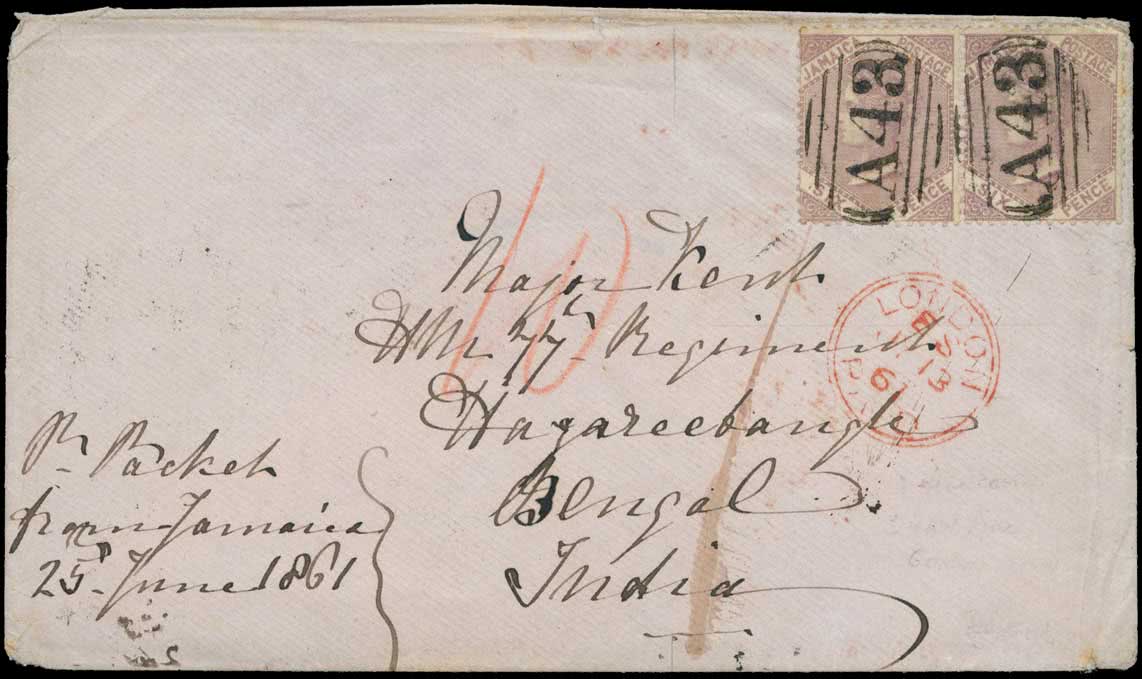 JAMAICA POSTAGE
SIX PENCE
A43
JAMAICA POSTAGE
SIX PENCE
A43
10
Major Kent
HM 77th Regiment
Hazareebaugh
Bengal
India
LONDON
13
61
PAID
1
Pr Packet
from Jamaica
25th June 1861